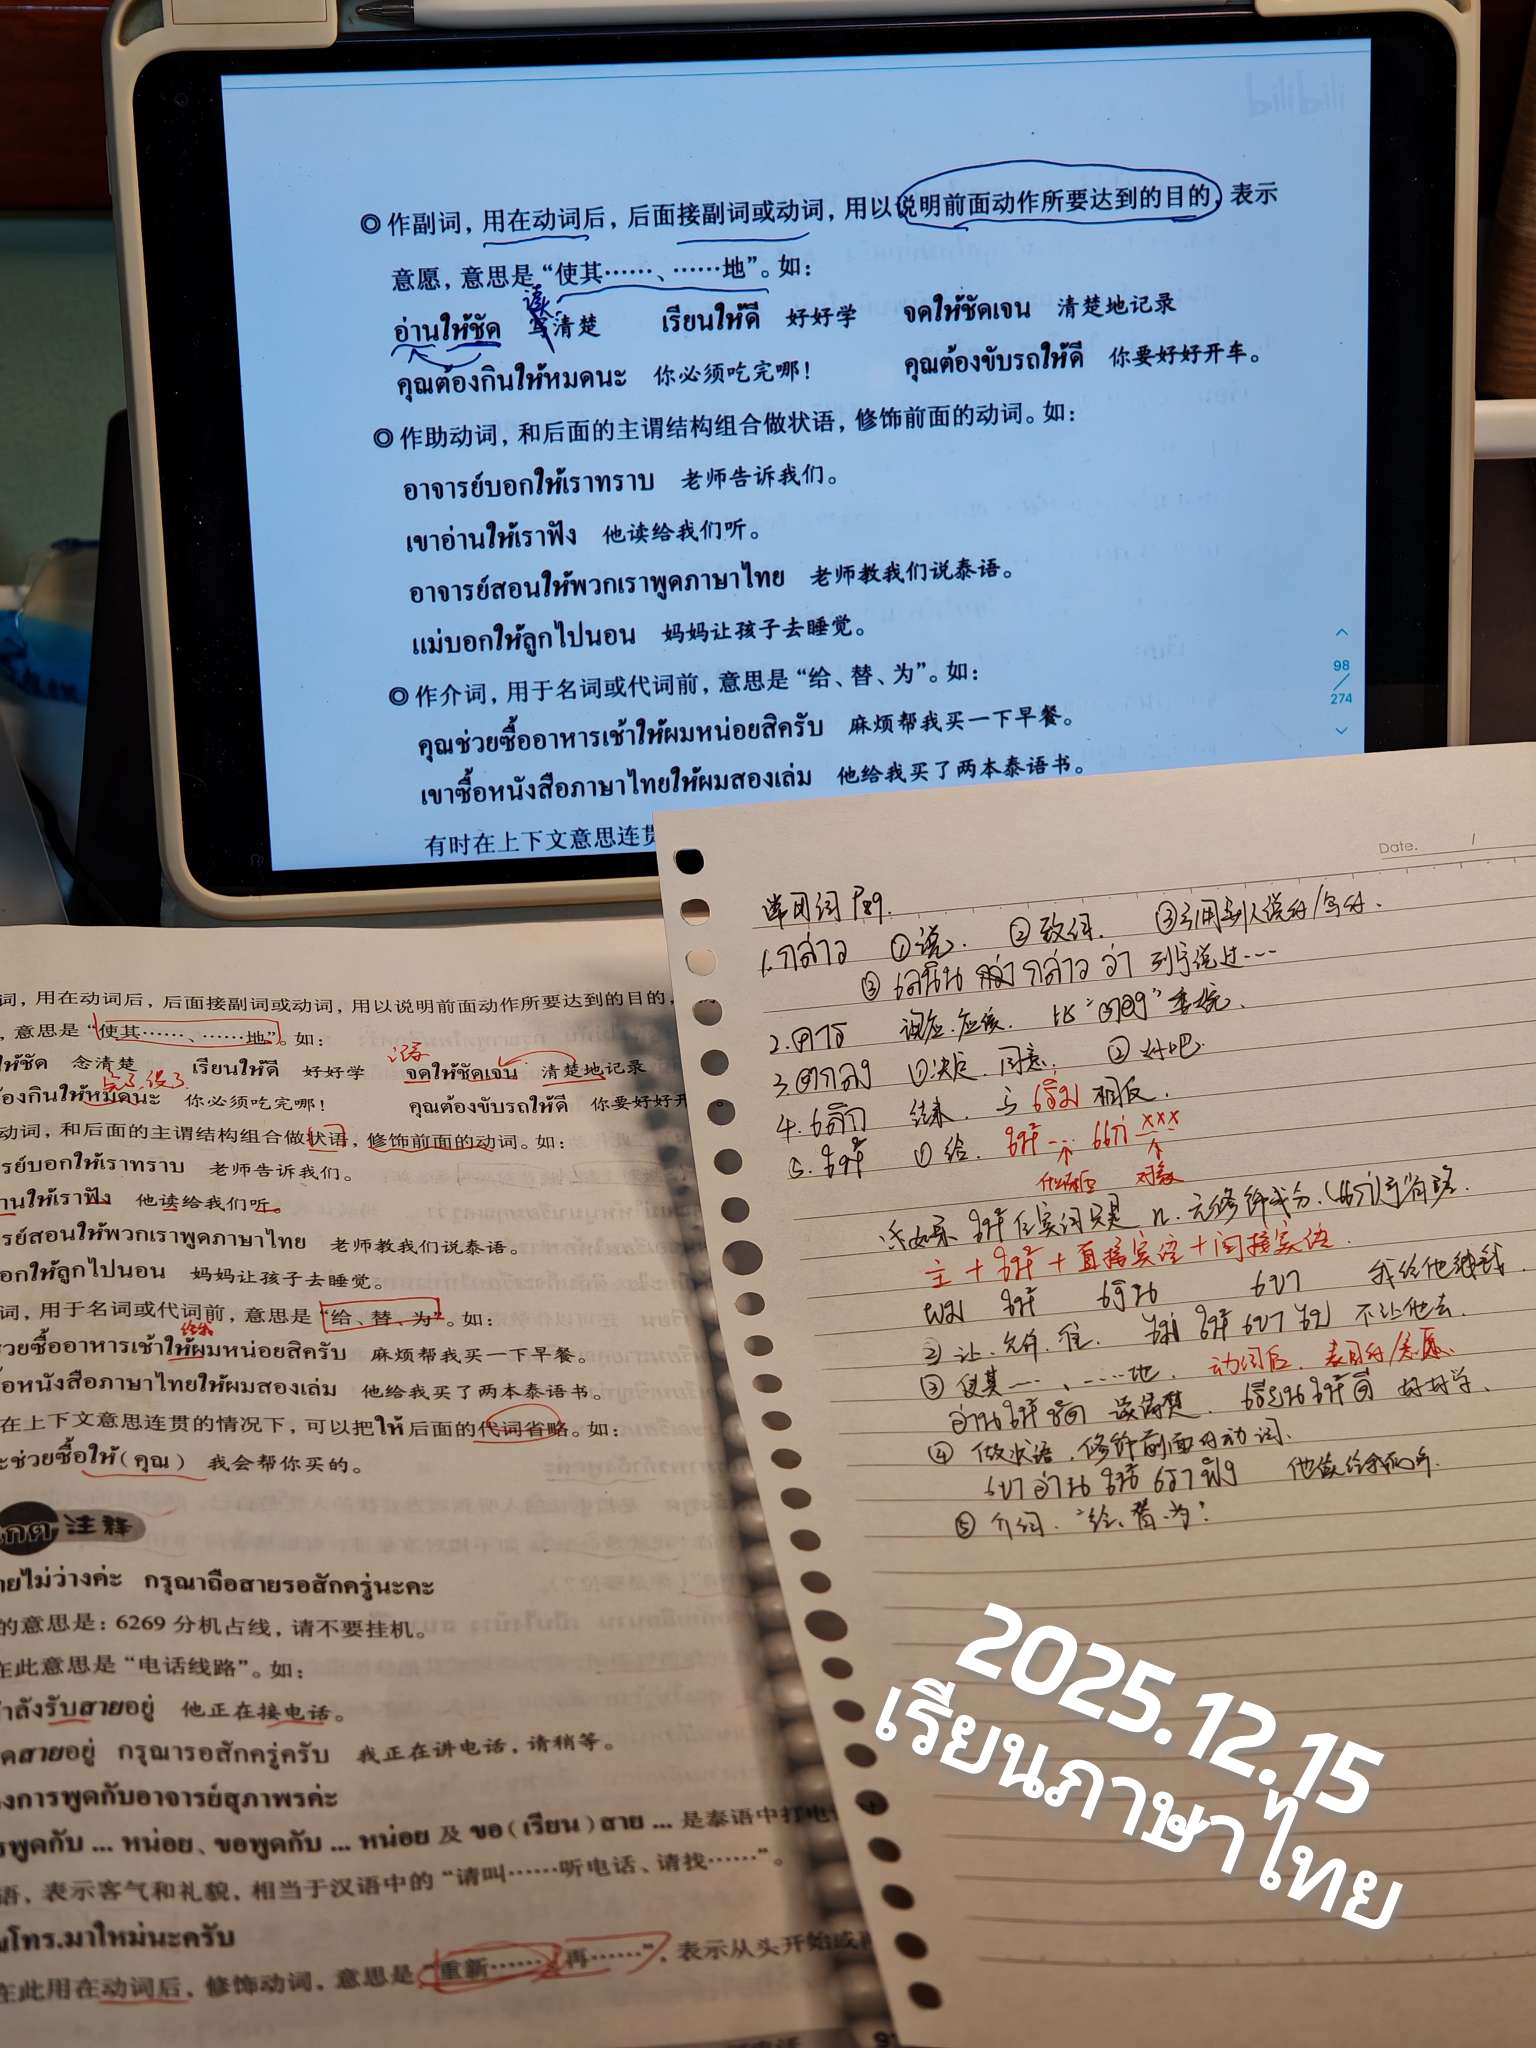 bilibili
◎ 作副词，用在动词后，后面接副词或动词，用以说明前面动作所要达到的目的，表示
意愿，意思是“使其……、……地”。如：
读
อ่านให้ชัด 写清楚 เรียนให้ดี 好好学 จดให้ชัดเจน 清楚地记录
คุณต้องกินให้หมดนะ 你必须吃完哪！ คุณต้องขับรถให้ดี 你要好好开车。
◎ 作助动词，和后面的主谓结构组合做状语，修饰前面的动词。如：
อาจารย์บอกให้เราทราบ 老师告诉我们。
เขาอ่านให้เราฟัง 他读给我们听。
อาจารย์สอนให้พวกเราพูดภาษาไทย 老师教我们说泰语。
แม่บอกให้ลูกไปนอน 妈妈让孩子去睡觉。
◎ 作介词，用于名词或代词前，意思是“给、替、为”。如：
คุณช่วยซื้ออาหารเช้าให้ผมหน่อยสิครับ 麻烦帮我买一下早餐。
เขาซื้อหนังสือภาษาไทยให้ผมสองเล่ม 他给我买了两本泰语书。
有时在上下文意思连贯
98
274
词，用在动词后，后面接副词或动词，用以说明前面动作所要达到的目的，
，意思是“使其……、……地”。如：
ให้ชัด 念清楚 เรียนให้ดี 好好学 จดให้ชัดเจน 清楚地记录
องกินให้หมดนะ 你必须吃完哪！ คุณต้องขับรถให้ดี 你要好好开
动词，和后面的主谓结构组合做状语，修饰前面的动词。如：
รย์บอกให้เราทราบ 老师告诉我们。
านให้เราฟัง 他读给我们听。
รย์สอนให้พวกเราพูดภาษาไทย 老师教我们说泰语。
อกให้ลูกไปนอน 妈妈让孩子去睡觉。
词，用于名词或代词前，意思是“给、替、为”。如：
วยซื้ออาหารเช้าให้ผมหน่อยสิครับ 麻烦帮我买一下早餐。
อหนังสือภาษาไทยให้ผมสองเล่ม 他给我买了两本泰语书。
在上下文意思连贯的情况下，可以把ให้后面的代词省略。如：
ะช่วยซื้อให้(คุณ) 我会帮你买的。
เกต 注释
ายไม่ว่างค่ะ กรุณาถือสายรอสักครู่นะคะ
的意思是：6269 分机占线，请不要挂机。
在此意思是“电话线路”。如：
กำลังรับสายอยู่ 他正在接电话。
ดสายอยู่ กรุณารอสักครู่ครับ 我正在讲电话，请稍等。
งการพูดกับอาจารย์สุภาพรค่ะ
รพูดกับ ... หน่อย、ขอพูดกับ ... หน่อย 及 ขอ(เรียน)สาย ... 是泰语中打电
语，表示客气和礼貌，相当于汉语中的“请叫……听电话、请找……”。
โทร.มาใหม่นะครับ
在此用在动词后，修饰动词，意思是“重新……、再……”，表示从头开始或
Date. /
常用词 P89.
1. กล่าว ①说. ②致词. ③引用别人说的/写的.
กล่าว ว่า
2. ควร
3. ตกลง ①决定. 同意. ②好吧.
4. เลิก 结束. 与 เริ่ม 相反.
5. ให้ ①给. ให้ … แก่ xxx
对象
主 + ให้ + 直接宾语 + 间接宾语.
ผม ให้ เงิน เขา 我给他钱
②让. 允许. 任. ไม่ ให้ เขา ไป 不让他去.
③使其……、……地. 动词后. 表目的/意愿.
อ่าน ให้ ชัด 读清楚. เรียน ให้ ดี 好好学.
④ 做状语. 修饰前面的动词.
เขา อ่าน ให้ เรา ฟัง 他读给我们听.
⑤ 介词. “给、替、为”
2025.12.15
เรียนภาษาไทย